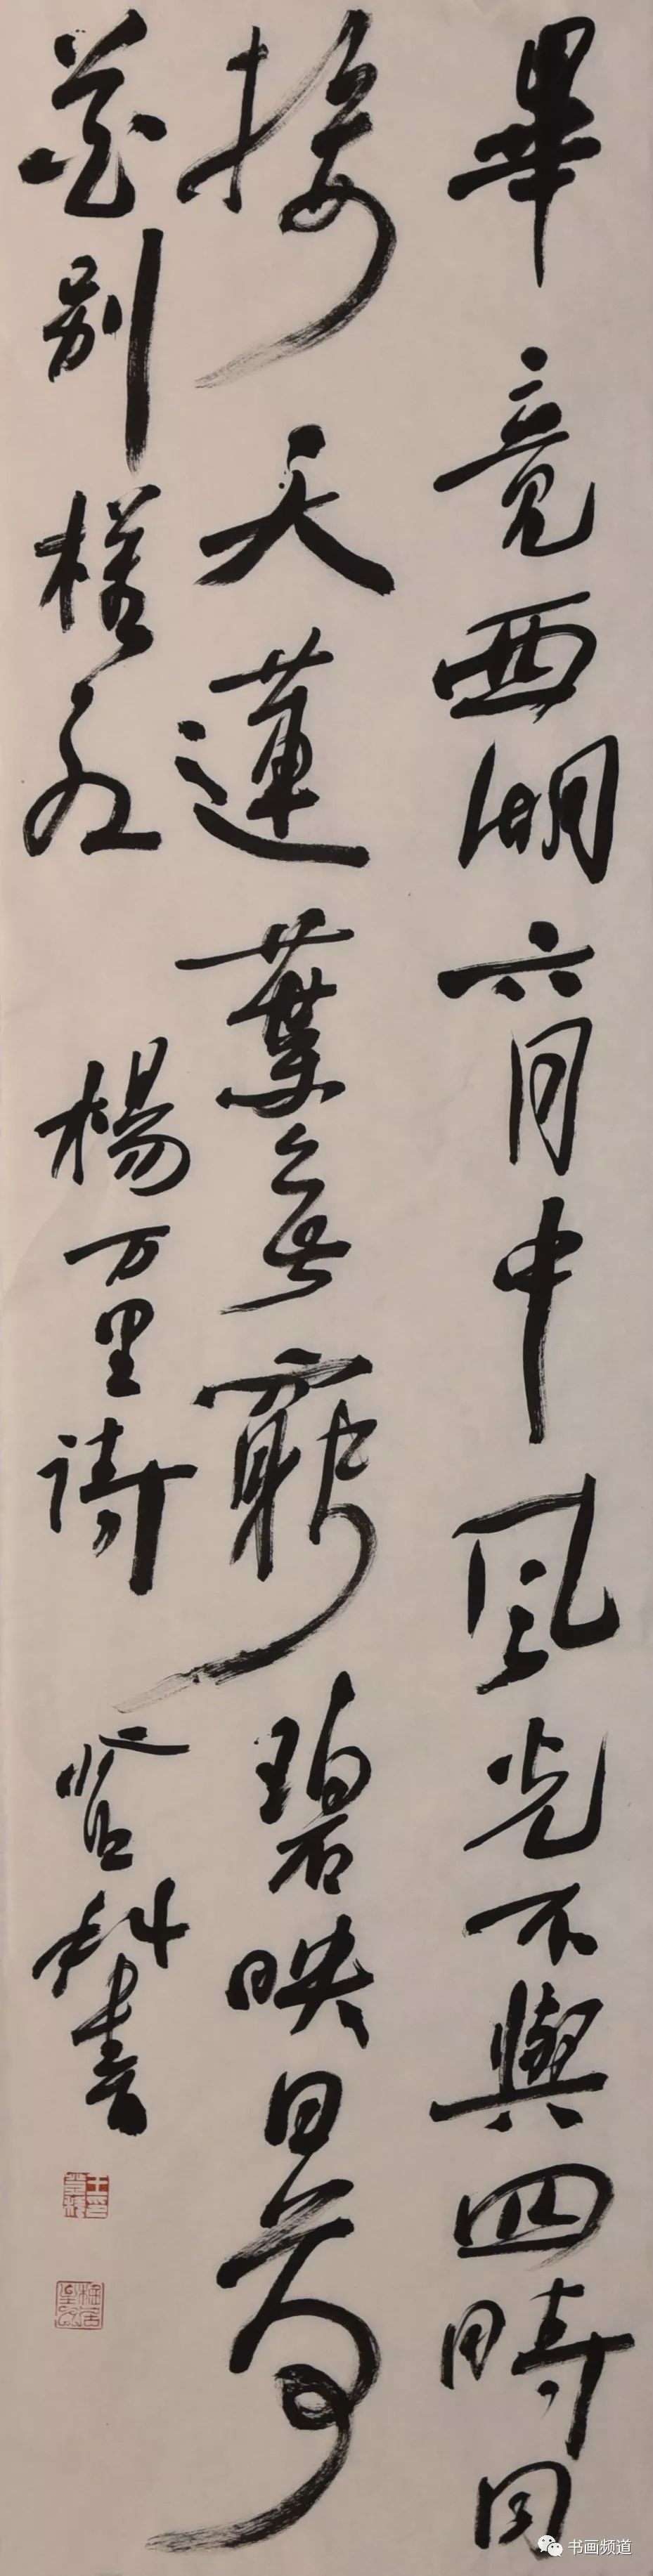 畢竟西湖六月中風光不與四時同
接天蓮葉無窮碧映日荷
花別樣紅
楊万里詩
登科書
书画频道